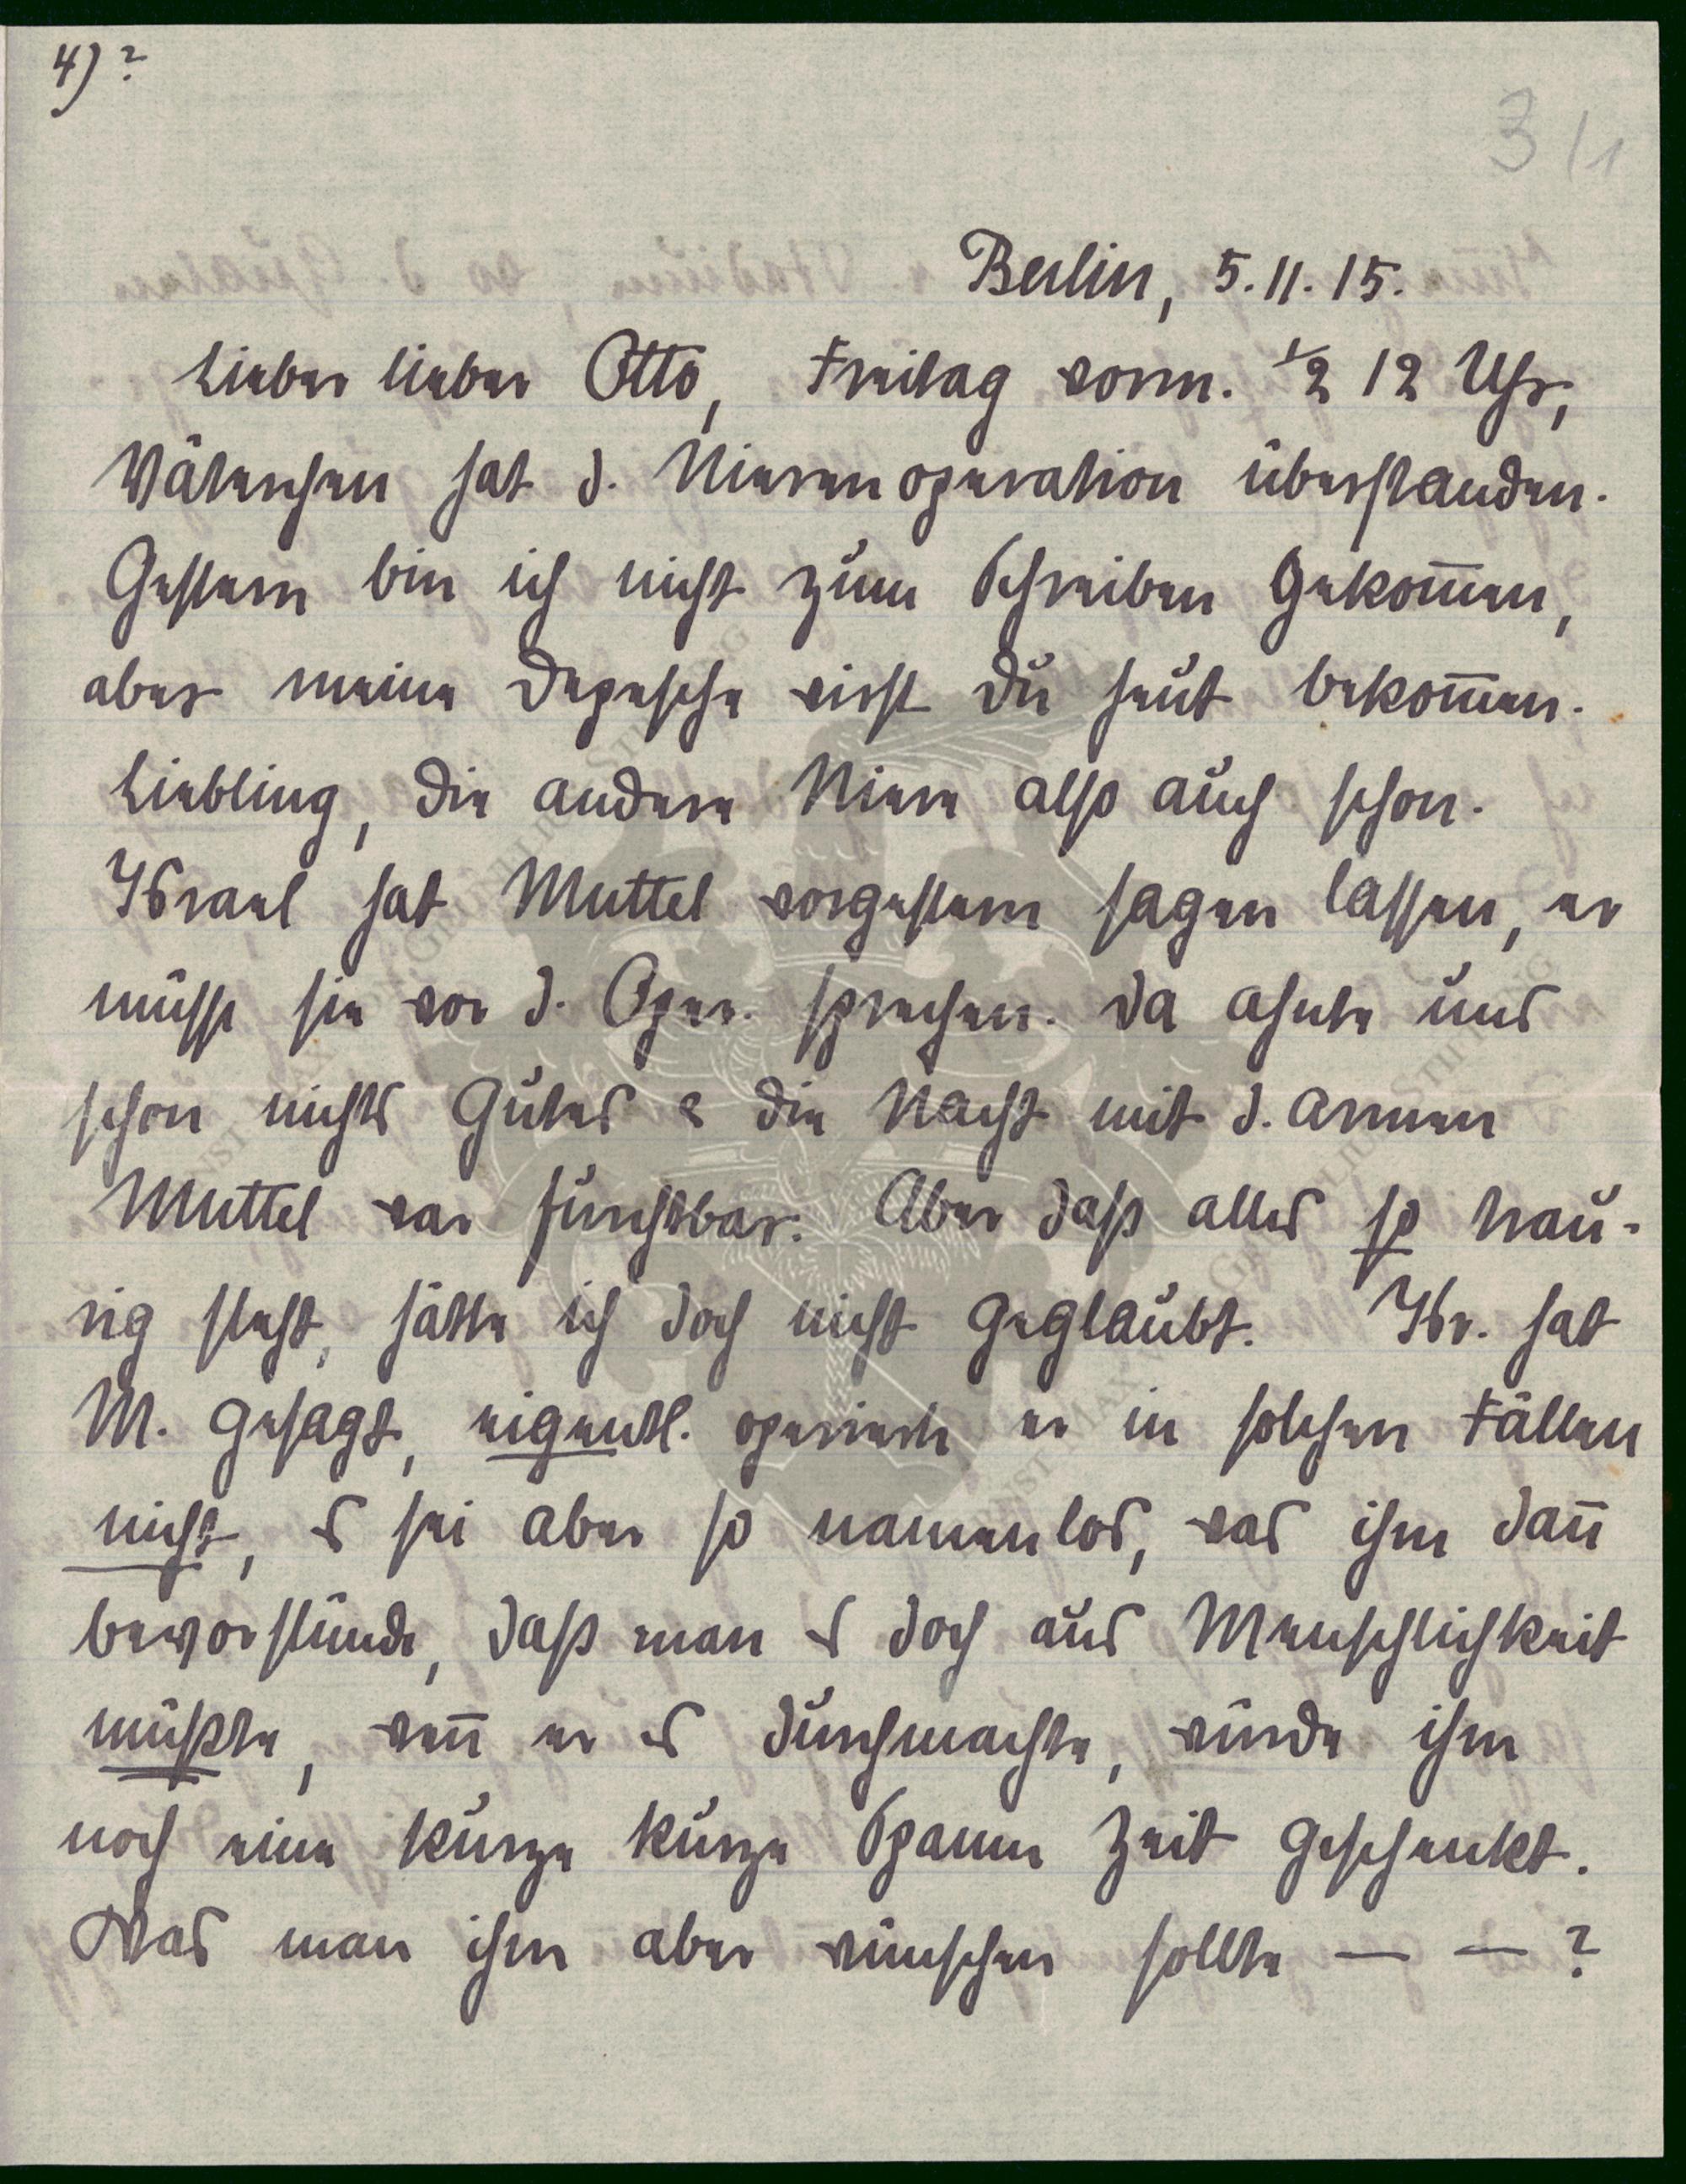 4)?
3/1
Berlin, 5.11.15.
Lieber lieber Otto, Freitag vorm. ½ 12 Uhr,
Väterchen hat d. Nierenoperation überstanden.
Gestern bin ich nicht zum Schreiben gekom̅en,
aber meine Depesche wirst Du heut bekom̅en.
Liebling, die andere Niere also auch schon.
Israel hat Muttel vorgestern sagen lassen, er
müsse sie vor d. Oper. sprechen. Da ahnte uns
schon nichts Gutes & die Nacht mit d. armen
Muttel war furchtbar. Aber daß alles so trau-
rig steht, hätte ich doch nicht geglaubt. Isr. hat
M. gesagt, eigentl. operierte er in solchen Fällen
nicht, es sei aber so namenlos, was ihm dan̅
bevorstünde, daß man es doch aus Menschlichkeit
müßte, wen̅ er es durchmachte, würde ihm
noch eine kurze kurze Spann Zeit geschenkt.
Was man ihm aber wünschen sollte — — ?